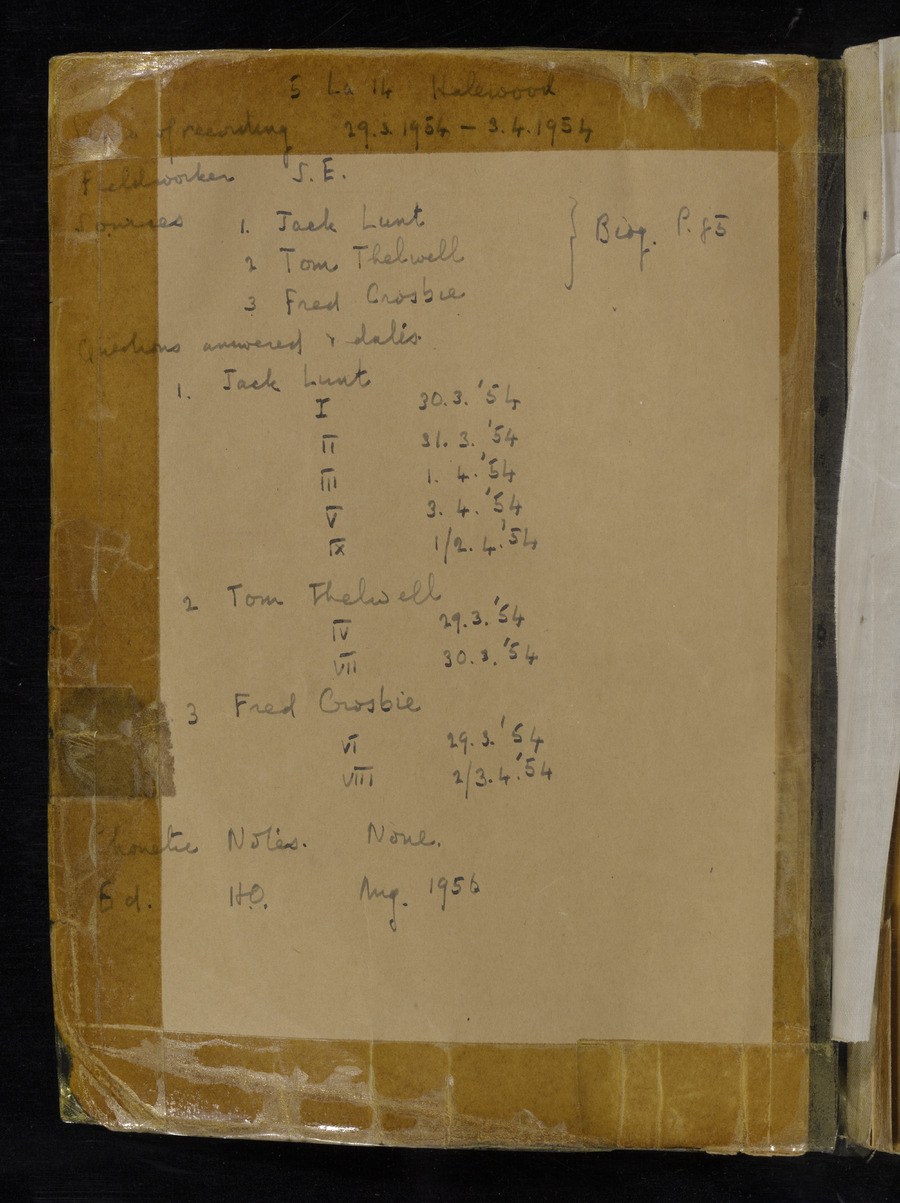 5 La 14 Halewood
Dates of recording 29.3.1954 – 3.4.1954
Fieldworker S.E.
Sources 1. Jack Lunt
2 Tom Thelwell
3 Fred Crosbie
} Biog. P. 85
Questions answered & dates.
1. Jack Lunt
I 30.3.'54
II 31.3.'54
III 1.4.'54
V 3.4.'54
IX 1/2.4.'54
2 Tom Thelwell
IV 29.3.'54
VII 30.3.'54
3 Fred Crosbie
VI 29.3.'54
VIII 2/3.4.'54
Phonetic Notes. None.
Ed. H.O. Aug. 1956